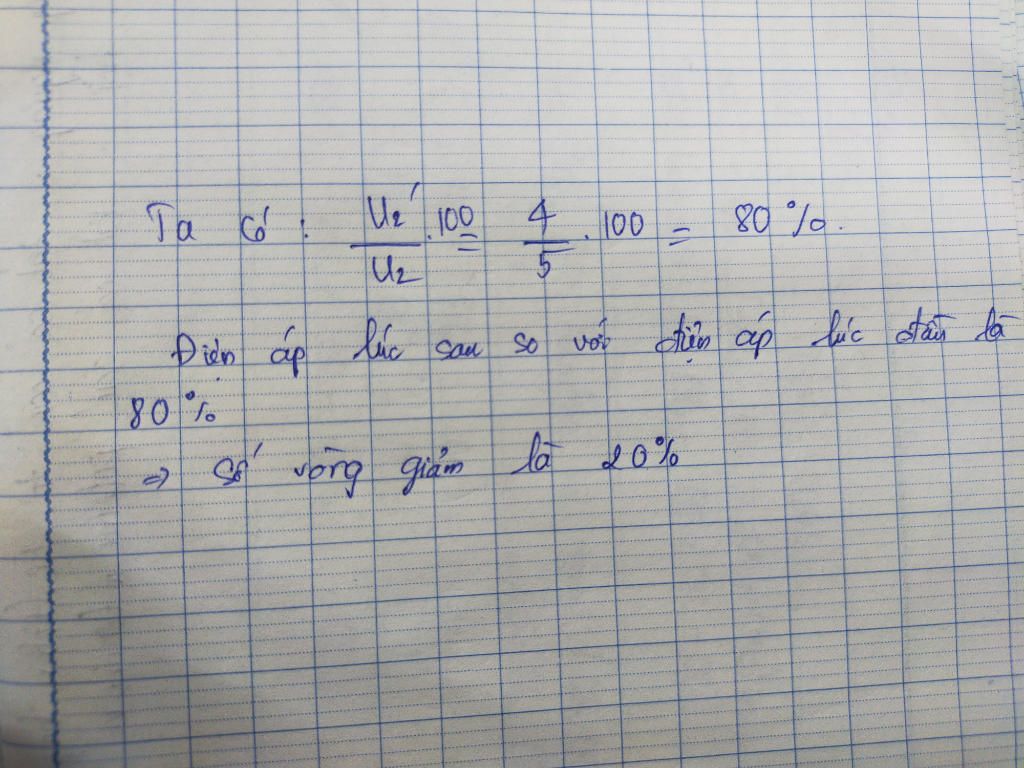 Ta có : U₂' / U₂ . 100 = 4 / 5 . 100 = 80 %.
Điện áp lúc sau so với điện áp lúc đầu là
80 %
=> Số vòng giảm là 20%